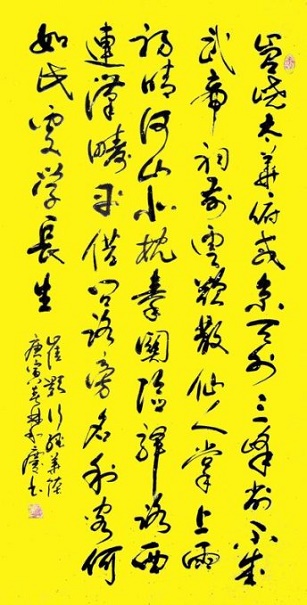 岧嶢太華俯咸京天外三峰削不成
武帝祠前雲欲散仙人掌上雨
初晴河山北枕秦關險驛路西
連漢畤平借問路旁名利客何
如此處学長生
崔颢行經華陰
庚寅春林書